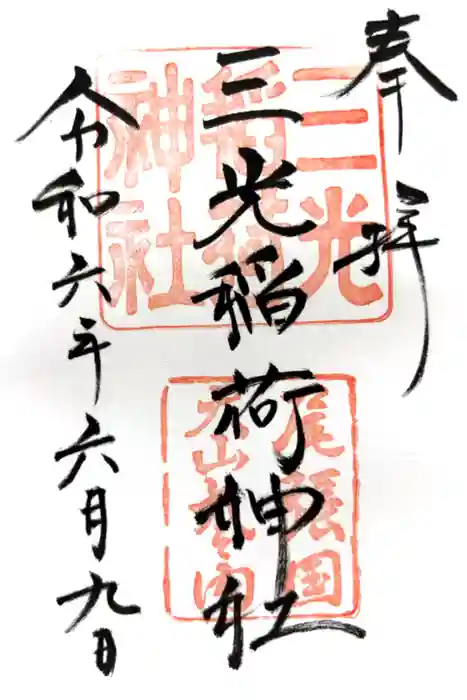 奉拝
三光稲荷神社
令和六年六月九日
三光
稲荷
神社
尾張国
犬山城内